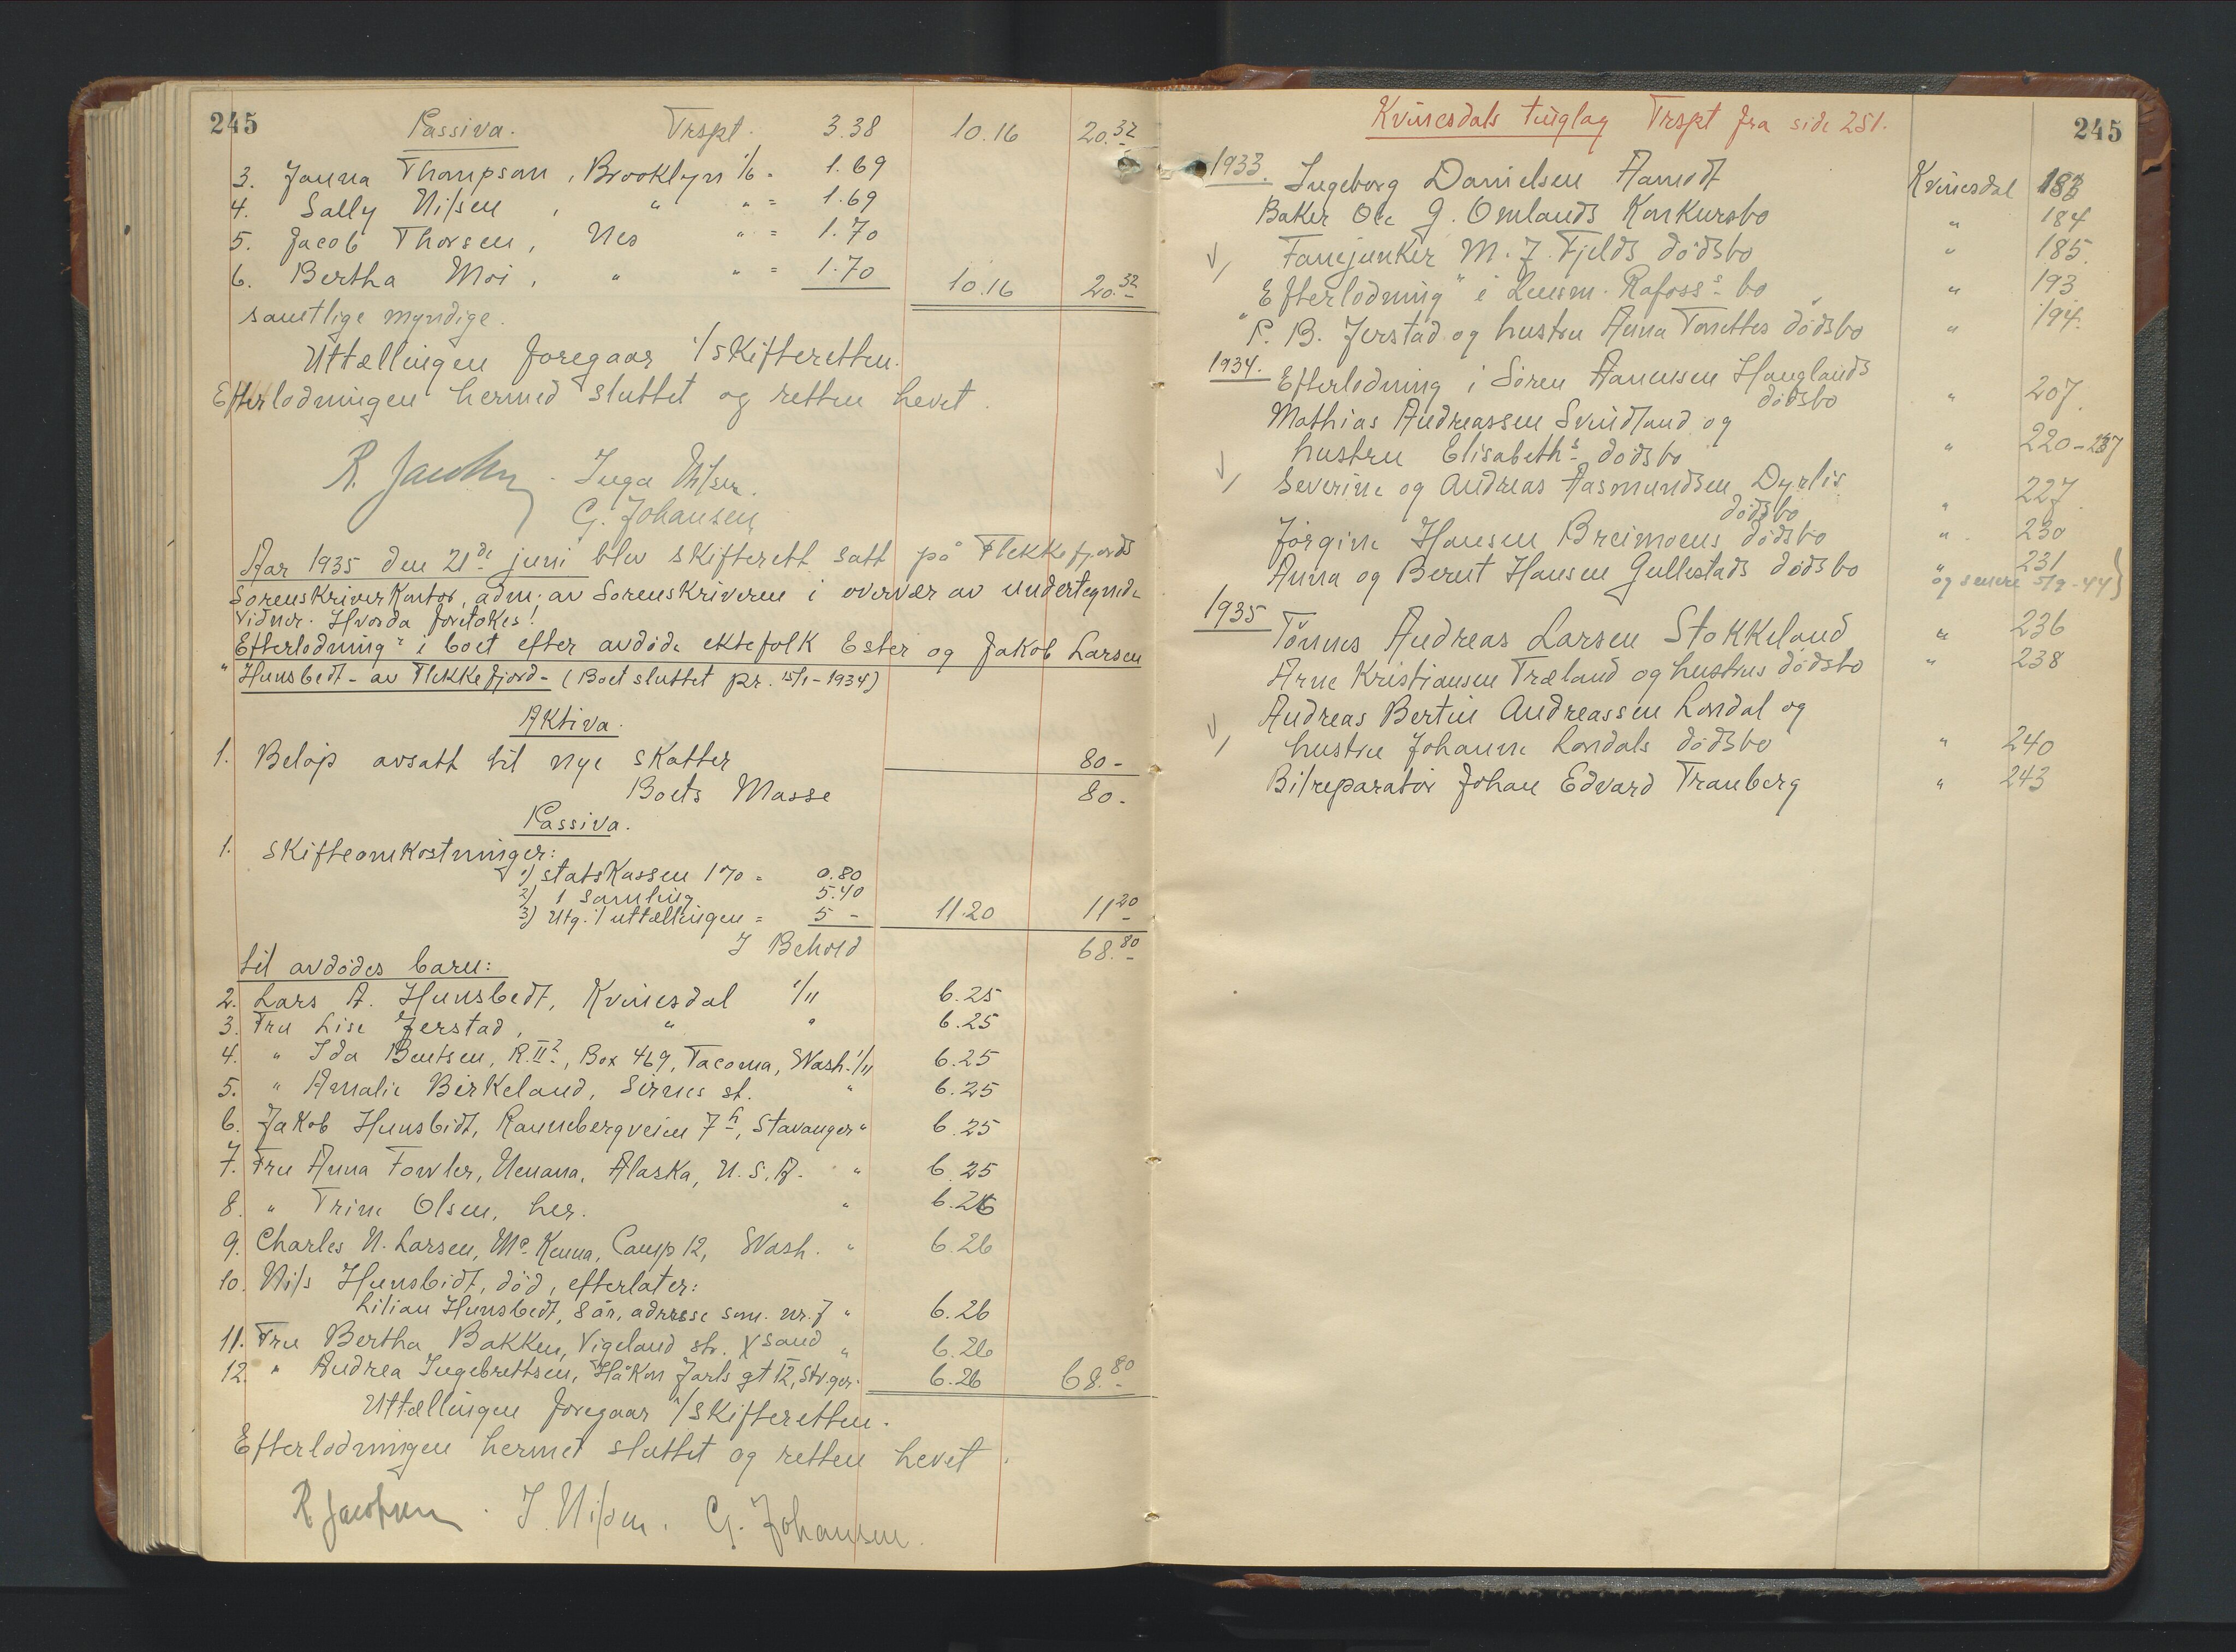 245
Passiva. Trspt. 3.38 10.16 20.32
3. Janna Thompson, Brooklyn 1/6 = 1.69
4. Sally Nilsen, " " = 1.69
5. Jacob Thorsen, Nes " = 1.70
6. Bertha Moi, " " = 1.70 10.16 20.32
samtlige myndige.
Uttællingen foregaar i/skifteretten.
Efterlodningen hermed sluttet og retten hevet.
R. Jacobsen. Inga Nilsen.
G. Johansen
Aar 1935 den 21de juni blev skifterett satt på Flekkefjords
Sorenskriverkontor, adm. av Sorenskriveren i overvær av undertegnede
vidner. Hvorda foretokes!
"Efterlodning" i boet efter avdøde ektefolk Ester og Jakob Larsen
Hunsbedt - av Flekkefjord - (Boet sluttet pr. 15/1-1934)
Aktiva.
1. Beløp avsatt til nye skatter 80 -
Boets Masse 80 -
Passiva.
1. Skifteomkostninger:
1) statskassen 1% = 0.80
2) 1 samling 5.40
3) Utg. v/ uttællingen = 5 - 11.20 11.20
I Behold 68.80
til avdødes barn:
2. Lars A. Hunsbedt, Kvinesdal 1/11 6.25
3. Fru Lise Jerstad, " " 6.25
4. " Ida Bentsen, R.II2, Box 469, Tacoma, Wash. 1/11 6.25
5. " Amalie Birkeland, Sirnes st. " 6.25
6. Jakob Hunsbedt, Rannebergveien 7h, Stavanger " 6.25
7. Fru Anna Fowler, Nenana, Alaska, U.S.A. " 6.25
8. " Trine Olsen, her. " 6.26
9. Charles N. Larsen, Mc Kenna, Camp 12, Wash. " 6.26
10. Nils Hunsbedt, død, efterlater:
Lilian Hunsbedt, 8 år, adresse som nr. 7 " 6.26
11. Fru Bertha Bakken, Vigeland st. Xsand " 6.26
12. " Andrea Ingebrettsen, Håkon Jarls gt 12, Stv.ger. 6.26 68.80
Uttællingen foregaar i/skifteretten.
Efterlodningen hermet sluttet og retten hevet.
R Jacobsen. I. Nilsen. G. Johansen.
Kvinesdals tinglag Trspt fra side 251.
245
1933. Ingeborg Danielsen Aamodt Kvinesdal 183
Baker Ole G. Omlands Konkursbo " 184
Fanejunker M. J. Fjelds dødsbo " 185.
"Efterlodning" i Lensm. Rafoss's bo " 193
P. B. Jerstad og hustru Anna Tonettes dødsbo " 194.
1934. Efterlodning i Søren Aanensen Hauglands
dødsbo " 207.
Mathias Andreassen Svindland og
hustru Elisabeths dødsbo " 220-237
Severine og Andreas Aasmundsen Dyrlis
dødsbo " 227
Jørgine Hansen Breimoens dødsbo " 230
Anna og Bernt Hansen Gullestads dødsbo " 231
og senere 5/9-44)
1935 Tønnes Andreas Larsen Stokkeland " 236
Arne Kristiansen Træland og hustrus dødsbo " 238
Andreas Bertin Andreassen Londal og
hustru Johanne Londals dødsbo " 240
Bilreparatør Johan Edvard Tranberg " 243